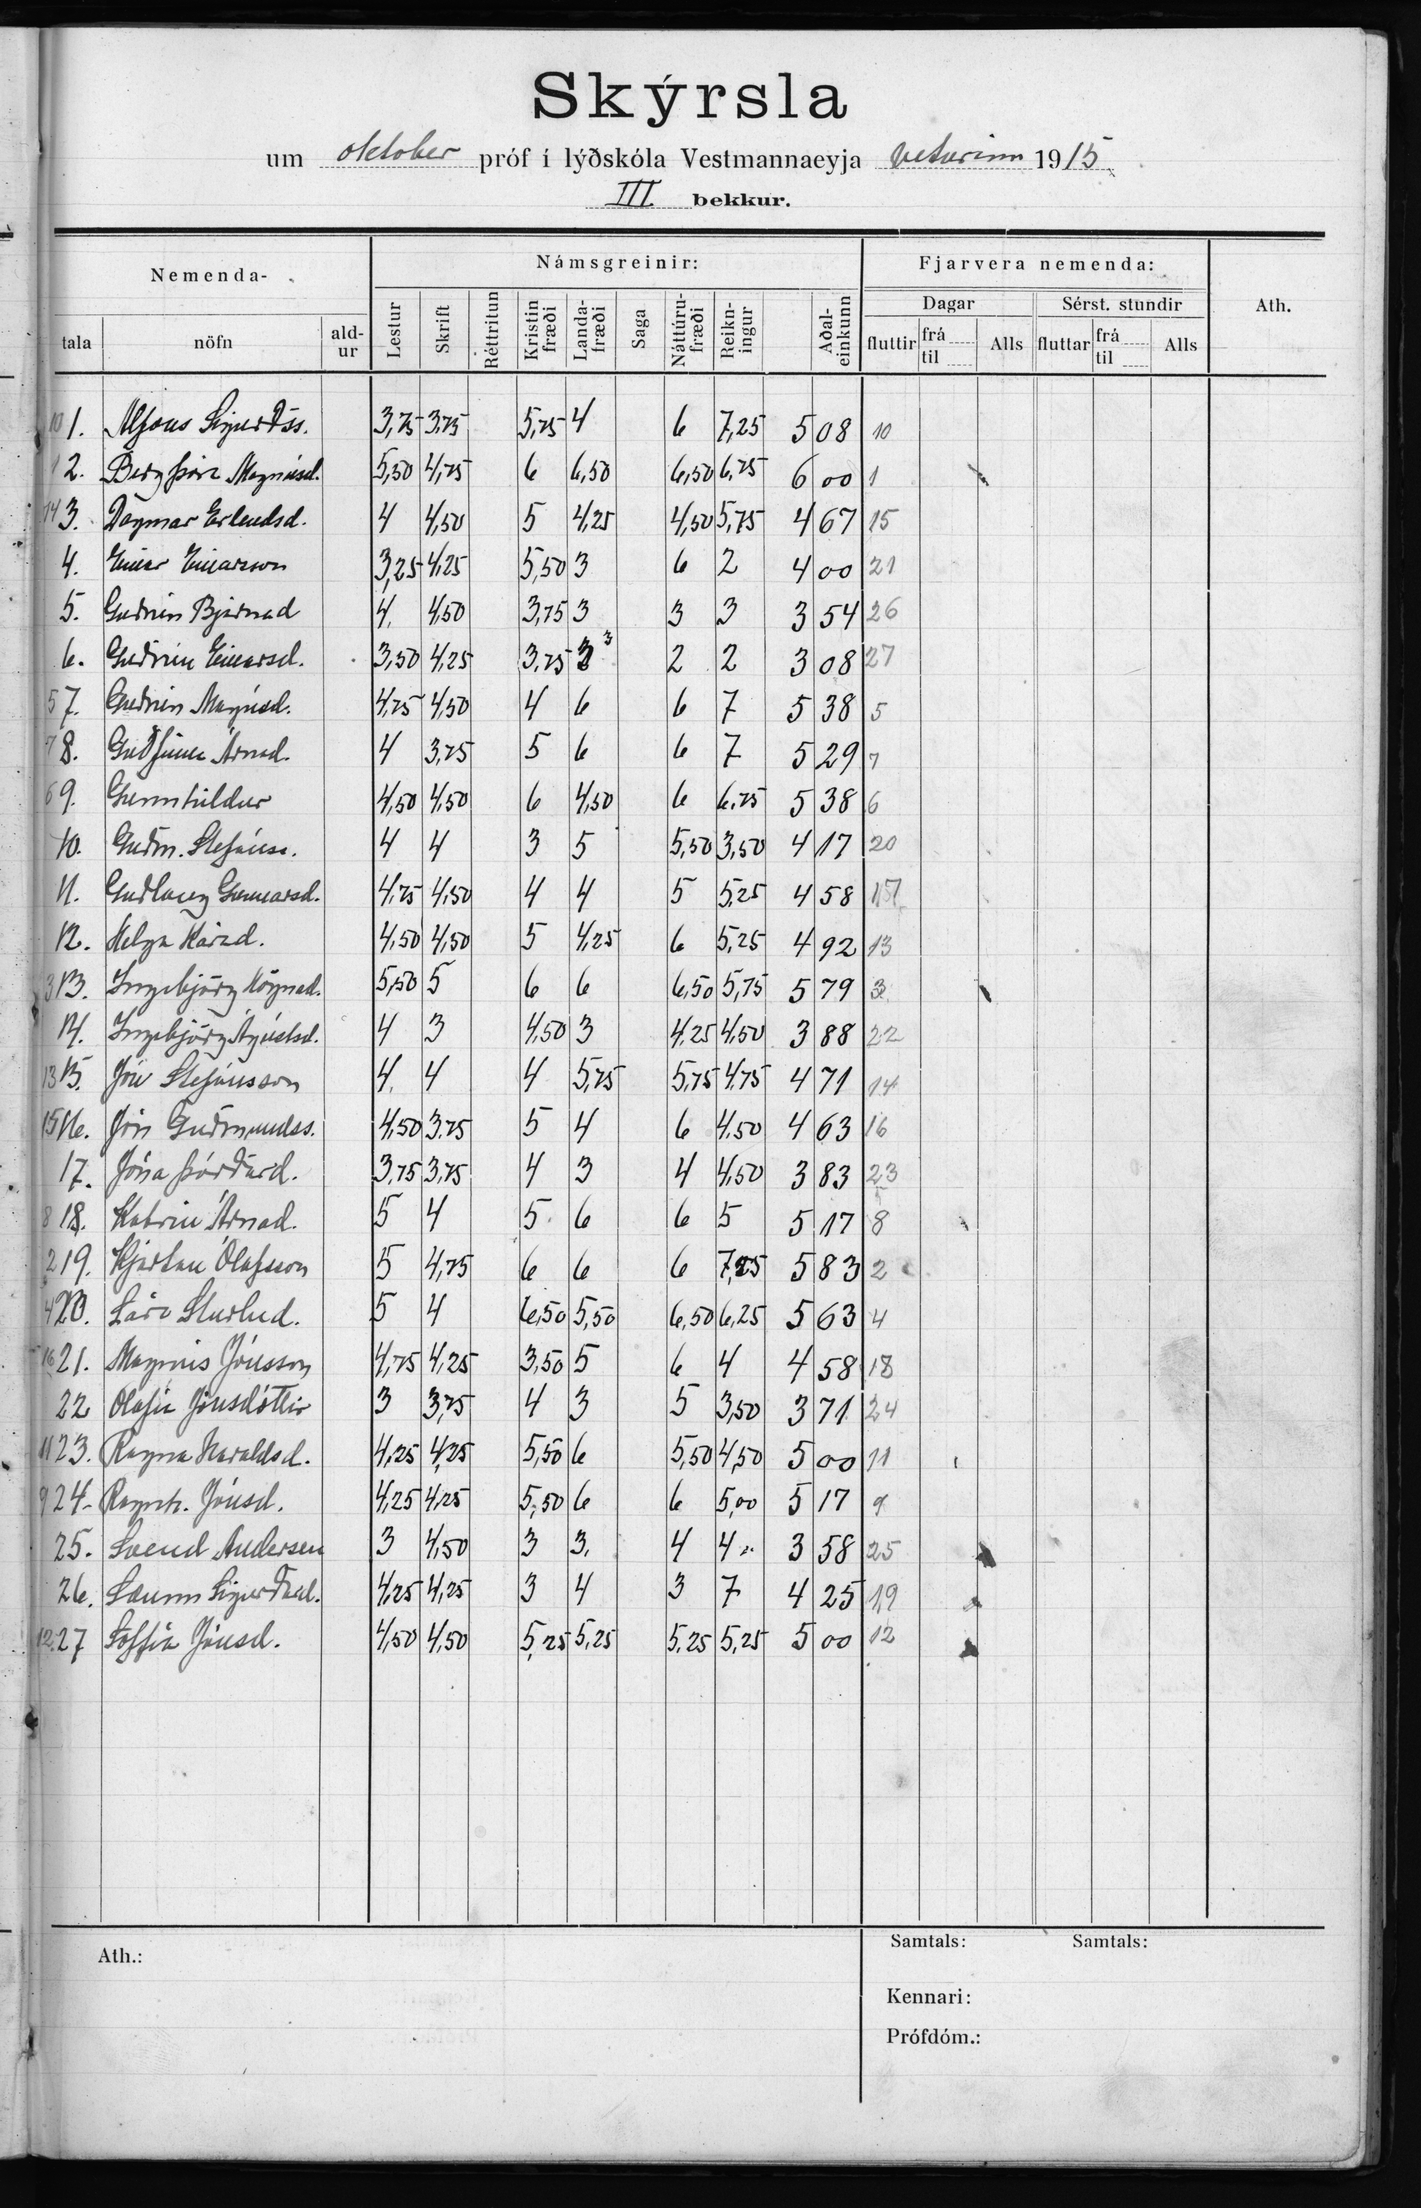 Skýrsla
um oktober próf í lýðskóla Vestmannaeyja veturinn 1915
III bekkur.
Nemenda- Námsgreinir: Fjarvera nemenda: Ath.
Dagar Sérst. stundir
tala nöfn ald-ur Lestur Skrift Réttritun Kristin fræði Landa-fræði Saga Náttúru-fræði Reikn-ingur Aðal-einkunn fluttir frá til Alls fluttar frá til Alls
10 1. Alfons Sigurðss. 3,75 3,75 5,75 4 6 7,25 5 08 10
1 2. Bergþóra Magnúsd. 5,50 4,75 6 6,50 6,50 6,75 6 00 1
14 3. Dagmar Erlendsd. 4 4,50 5 4,25 4,50 5,75 4 67 15
4. Einar Einarsson 3,25 4,25 5,50 3 6 2 4 00 21
5. Guðrún Bjarnad 4. 4,50 3,75 3 3 3 3 54 26
6. Guðrún Einarsd. 3,50 4,25 3,75 3 2 2 3 08 27
5 7. Guðrún Magnúsd. 4,75 4,50 4 6 6 7 5 38 5
7 8. Guðfinna Árnad. 4 3,75 5 6 6 7 5 29 7
6 9. Gunnhildur 4,50 4,50 6 4,50 6 6,75 5 38 6
10. Guðm. Stefánss. 4 4 3 5 5,50 3,50 4 17 20
11. Guðlaug Gunnarsd. 4,75 4,50 4 4 5 5,25 4 58 17
12. Helga Kárad. 4,50 4,50 5 4,25 6 5,25 4 92 13
3 13. Ingibjörg Högnad. 5,50 5 6 6 6,50 5,75 5 79 3
14. Ingibjörg Ágústsd. 4 3 4,50 3 4,25 4,50 3 88 22
13 15. Jón Stefánsson 4. 4 4 5,75 5,75 4,75 4 71 14
15 16. Jón Guðmundss. 4,50 3,75 5 4 6 4,50 4 63 16
17. Jóna Þórðard. 3,75 3,75 4 3 4 4,50 3 83 23
8 18. Katrín Árnad. 5 4 5 6 6 5 5 17 8
2 19. Kjartan Ólafsson 5 4,75 6 6 6 7,25 5 83 2
4 20. Lára Sturlud. 5 4 6,50 5,50 6,50 6,25 5 63 4
16 21. Magnús Jónsson 4,75 4,25 3,50 5 6 4 4 58 18
22 Ólafía Jónsdóttir 3 3,75 4 3 5 3,50 3 71 24
11 23. Ragna Haraldsd. 4,25 4,25 5,50 6 5,50 4,50 5 00 11
9 24. Ragnh. Jónsd. 4,25 4,25 5,50 6 6 5,00 5 17 9
25. Svend Andersen 3 4,50 3 3. 4 4 " 3 58 25
26. Sæunn Sigurðard. 4,25 4,25 3 4 3 7 4 25 19
12 27 Soffía Jónsd. 4,50 4,50 5,25 5,25 5,25 5,25 5 00 12
Ath.: Samtals: Samtals:
Kennari:
Prófdóm.: